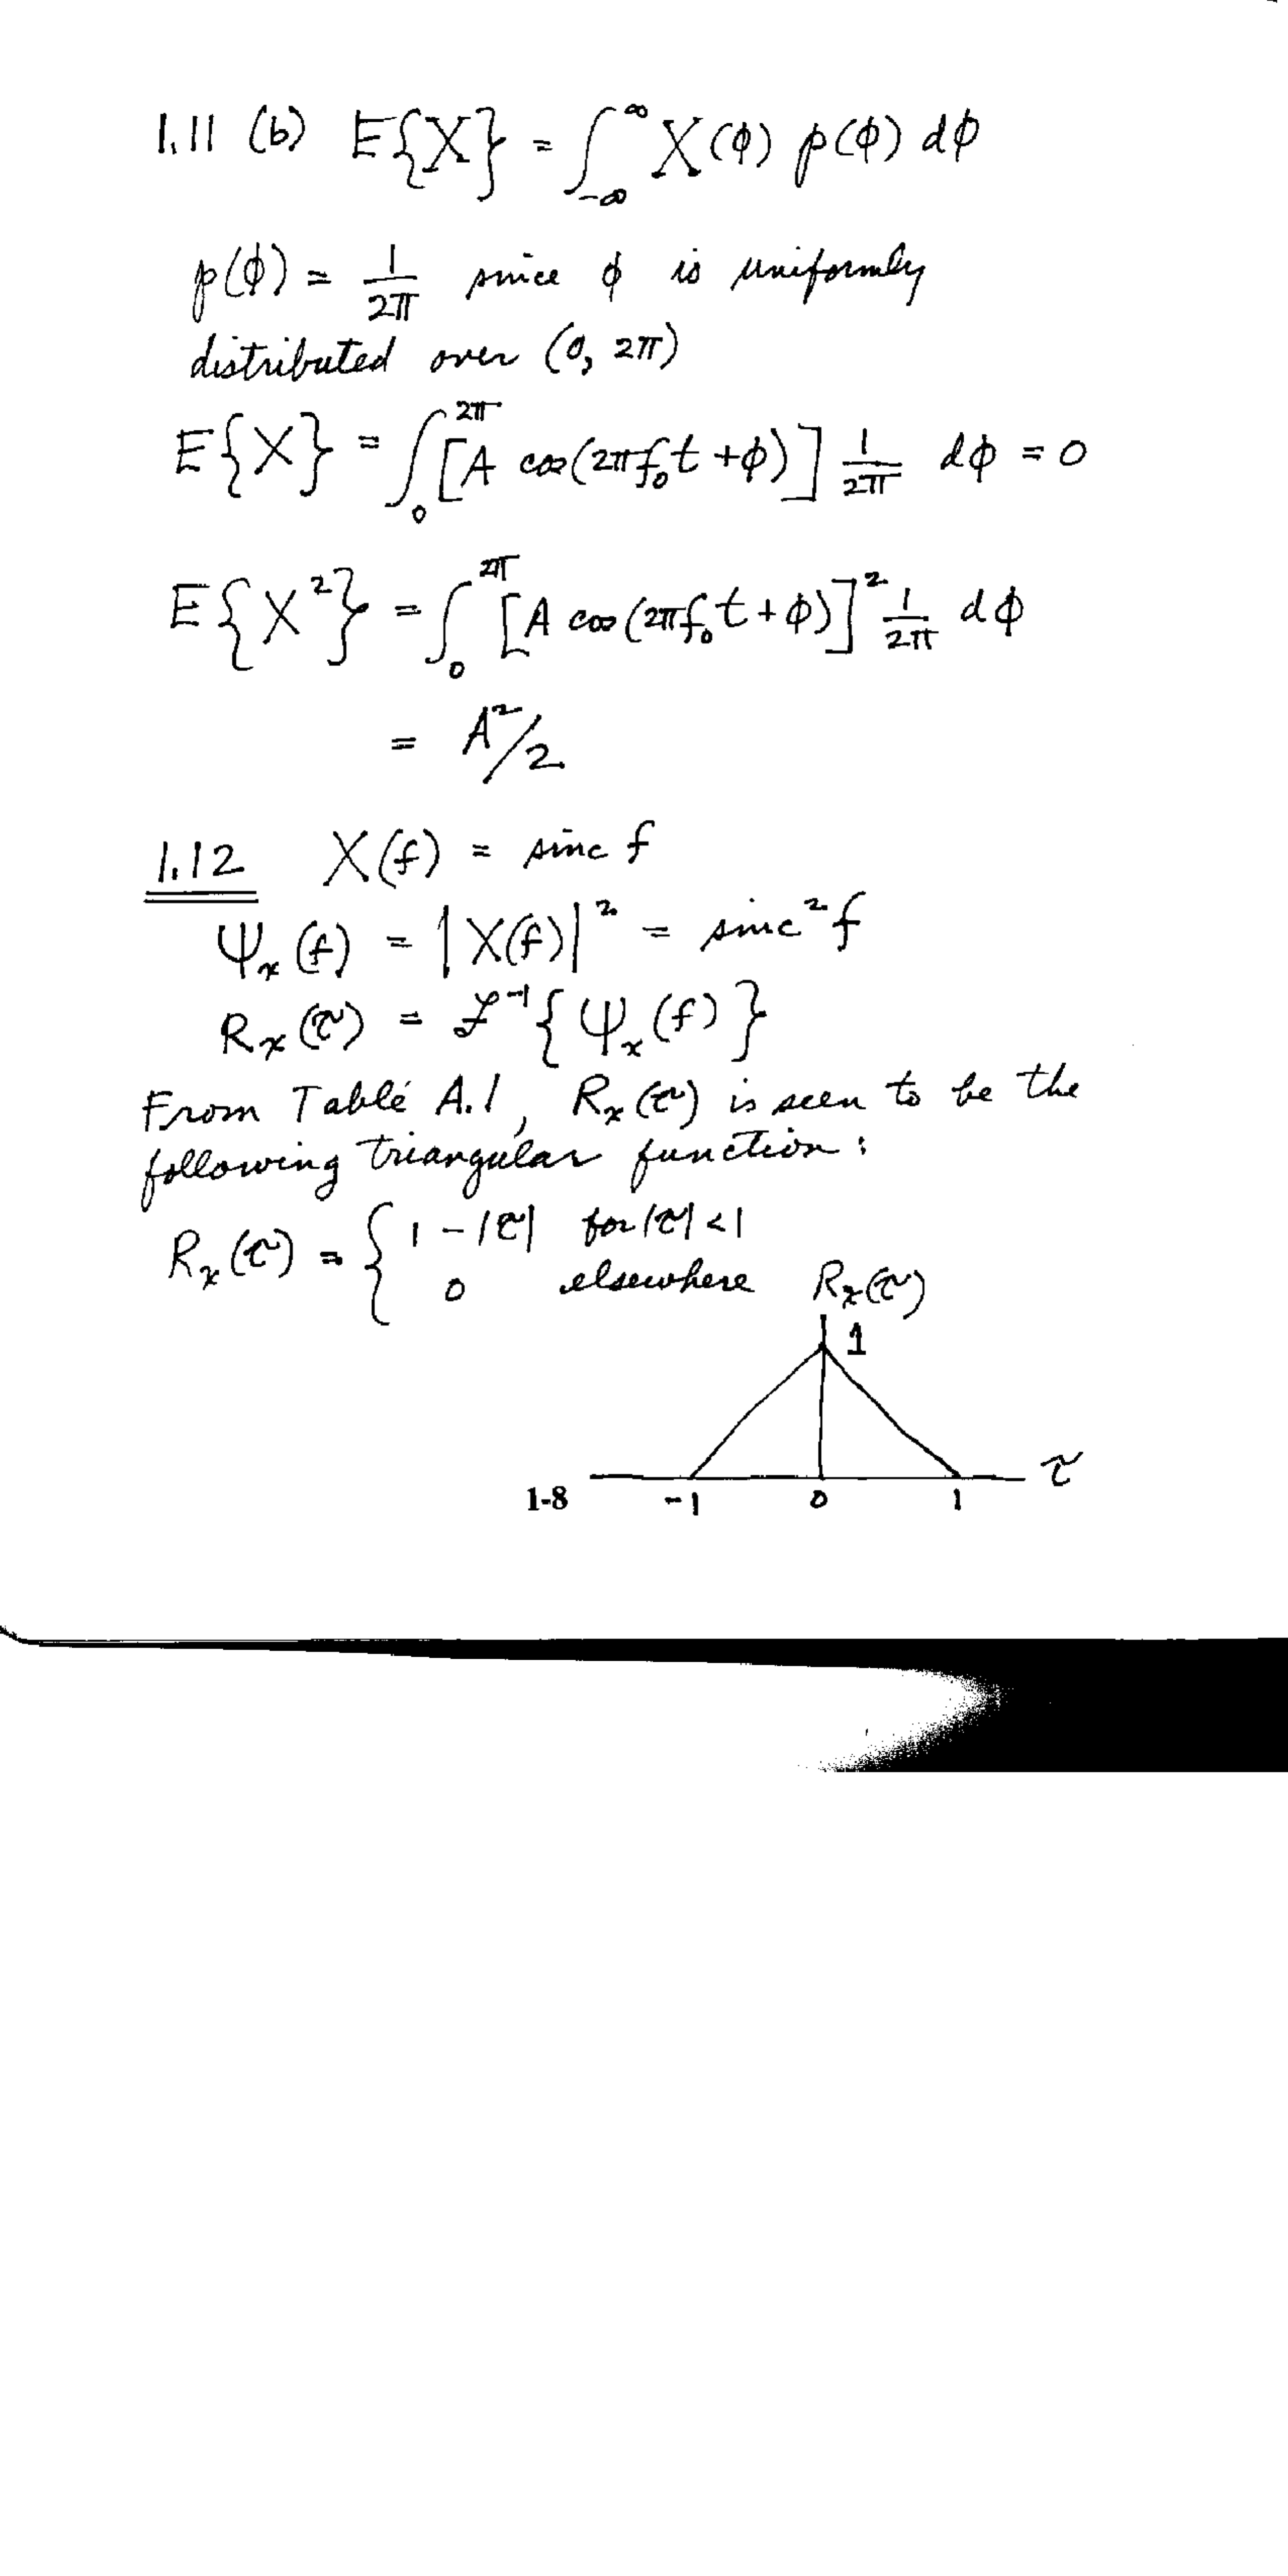 1.11 (b) E{X} = ∫_{-∞}^{∞} X(φ) p(φ) dφ
p(φ) = 1/2π since φ is uniformly
distributed over (0, 2π)
E{X} = ∫_0^{2π} [A cos(2πf₀t + φ)] 1/2π dφ = 0
E{X²} = ∫_0^{2π} [A cos(2πf₀t + φ)]² 1/2π dφ
= A²/2
1.12 X(f) = sinc f
Ψₓ(f) = |X(f)|² = sinc² f
Rₓ(τ) = ℱ⁻¹{Ψₓ(f)}
From Table A.1, Rₓ(τ) is seen to be the
following triangular function:
Rₓ(τ) = { 1 - |τ| for |τ| < 1
0 elsewhere
Rₓ(τ)
1
τ
-1 0 1
1-8